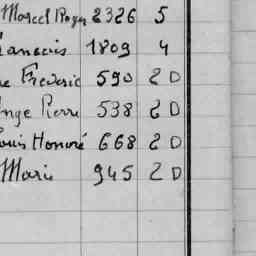 Marcel Roger 2326 5
François 1809 4
Frederic 590 2 D
Ange Pierre 538 2 D
Louis Honoré 668 2 D
Marie 945 2 D